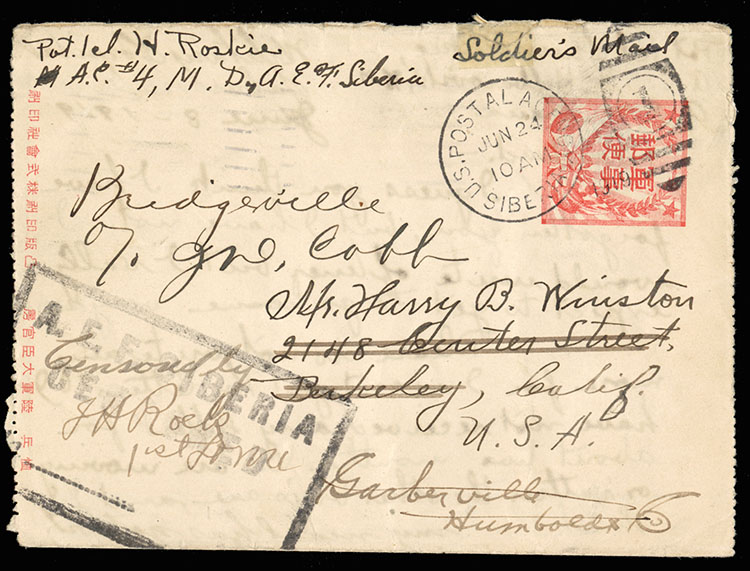 Pvt. 1cl. H. Roskie
Soldier's Mail
A.P. #4, M. D, A. E. F. Siberia
U.S. POSTAL AG
JUN 24
10 AM
SIBE
軍事
郵便
Bridgeville
℅ Cobb
Mr. Harry B. Winston
2148 Center Street,
Berkeley, Calif.
U. S. A.
A. E. F. SIBERIA
CE
Censored by
1st
Garberville
Humboldt Co